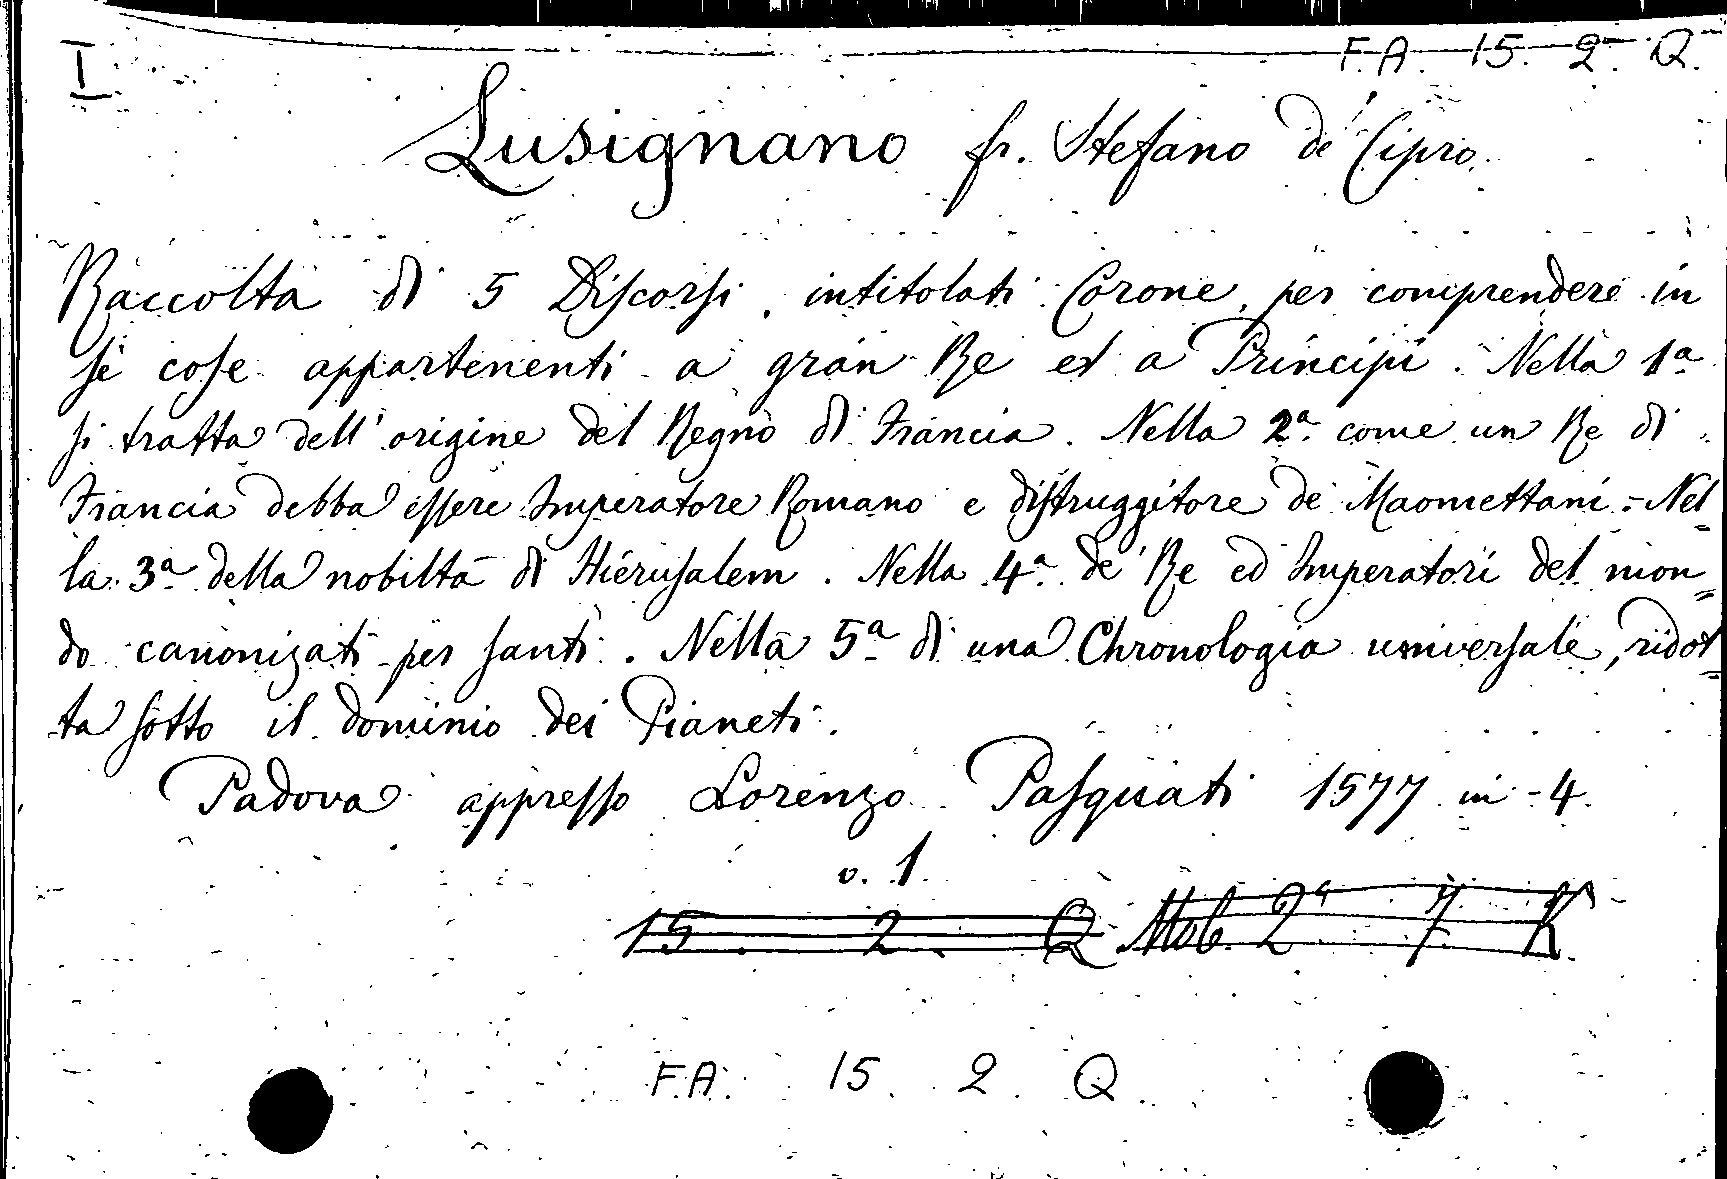 I
F.A. 15. 2. Q.
Lusignano fr. Stefano de' Cipro.
Raccolta di 5 Discorsi, intitolati Corone, per comprendere in
sè cose appartenenti a gran Re et a Principi. Nella 1ª
si tratta dell'origine del Regno di Francia. Nella 2ª come un Re di
Francia debba essere Imperatore Romano e distruggitore de Maomettani. Nel=
la 3ª della nobiltà di Hierusalem. Nella 4ª de' Re ed Imperatori del mon=
do canonizati per santi. Nella 5ª di una Chronologia universale, ridot=
ta sotto il dominio dei Pianeti.
Padova appresso Lorenzo Pasquati 1577 in-4.
v. 1
15. 2. Q Mob. 2ª 7. K.
F.A. 15. 2. Q.